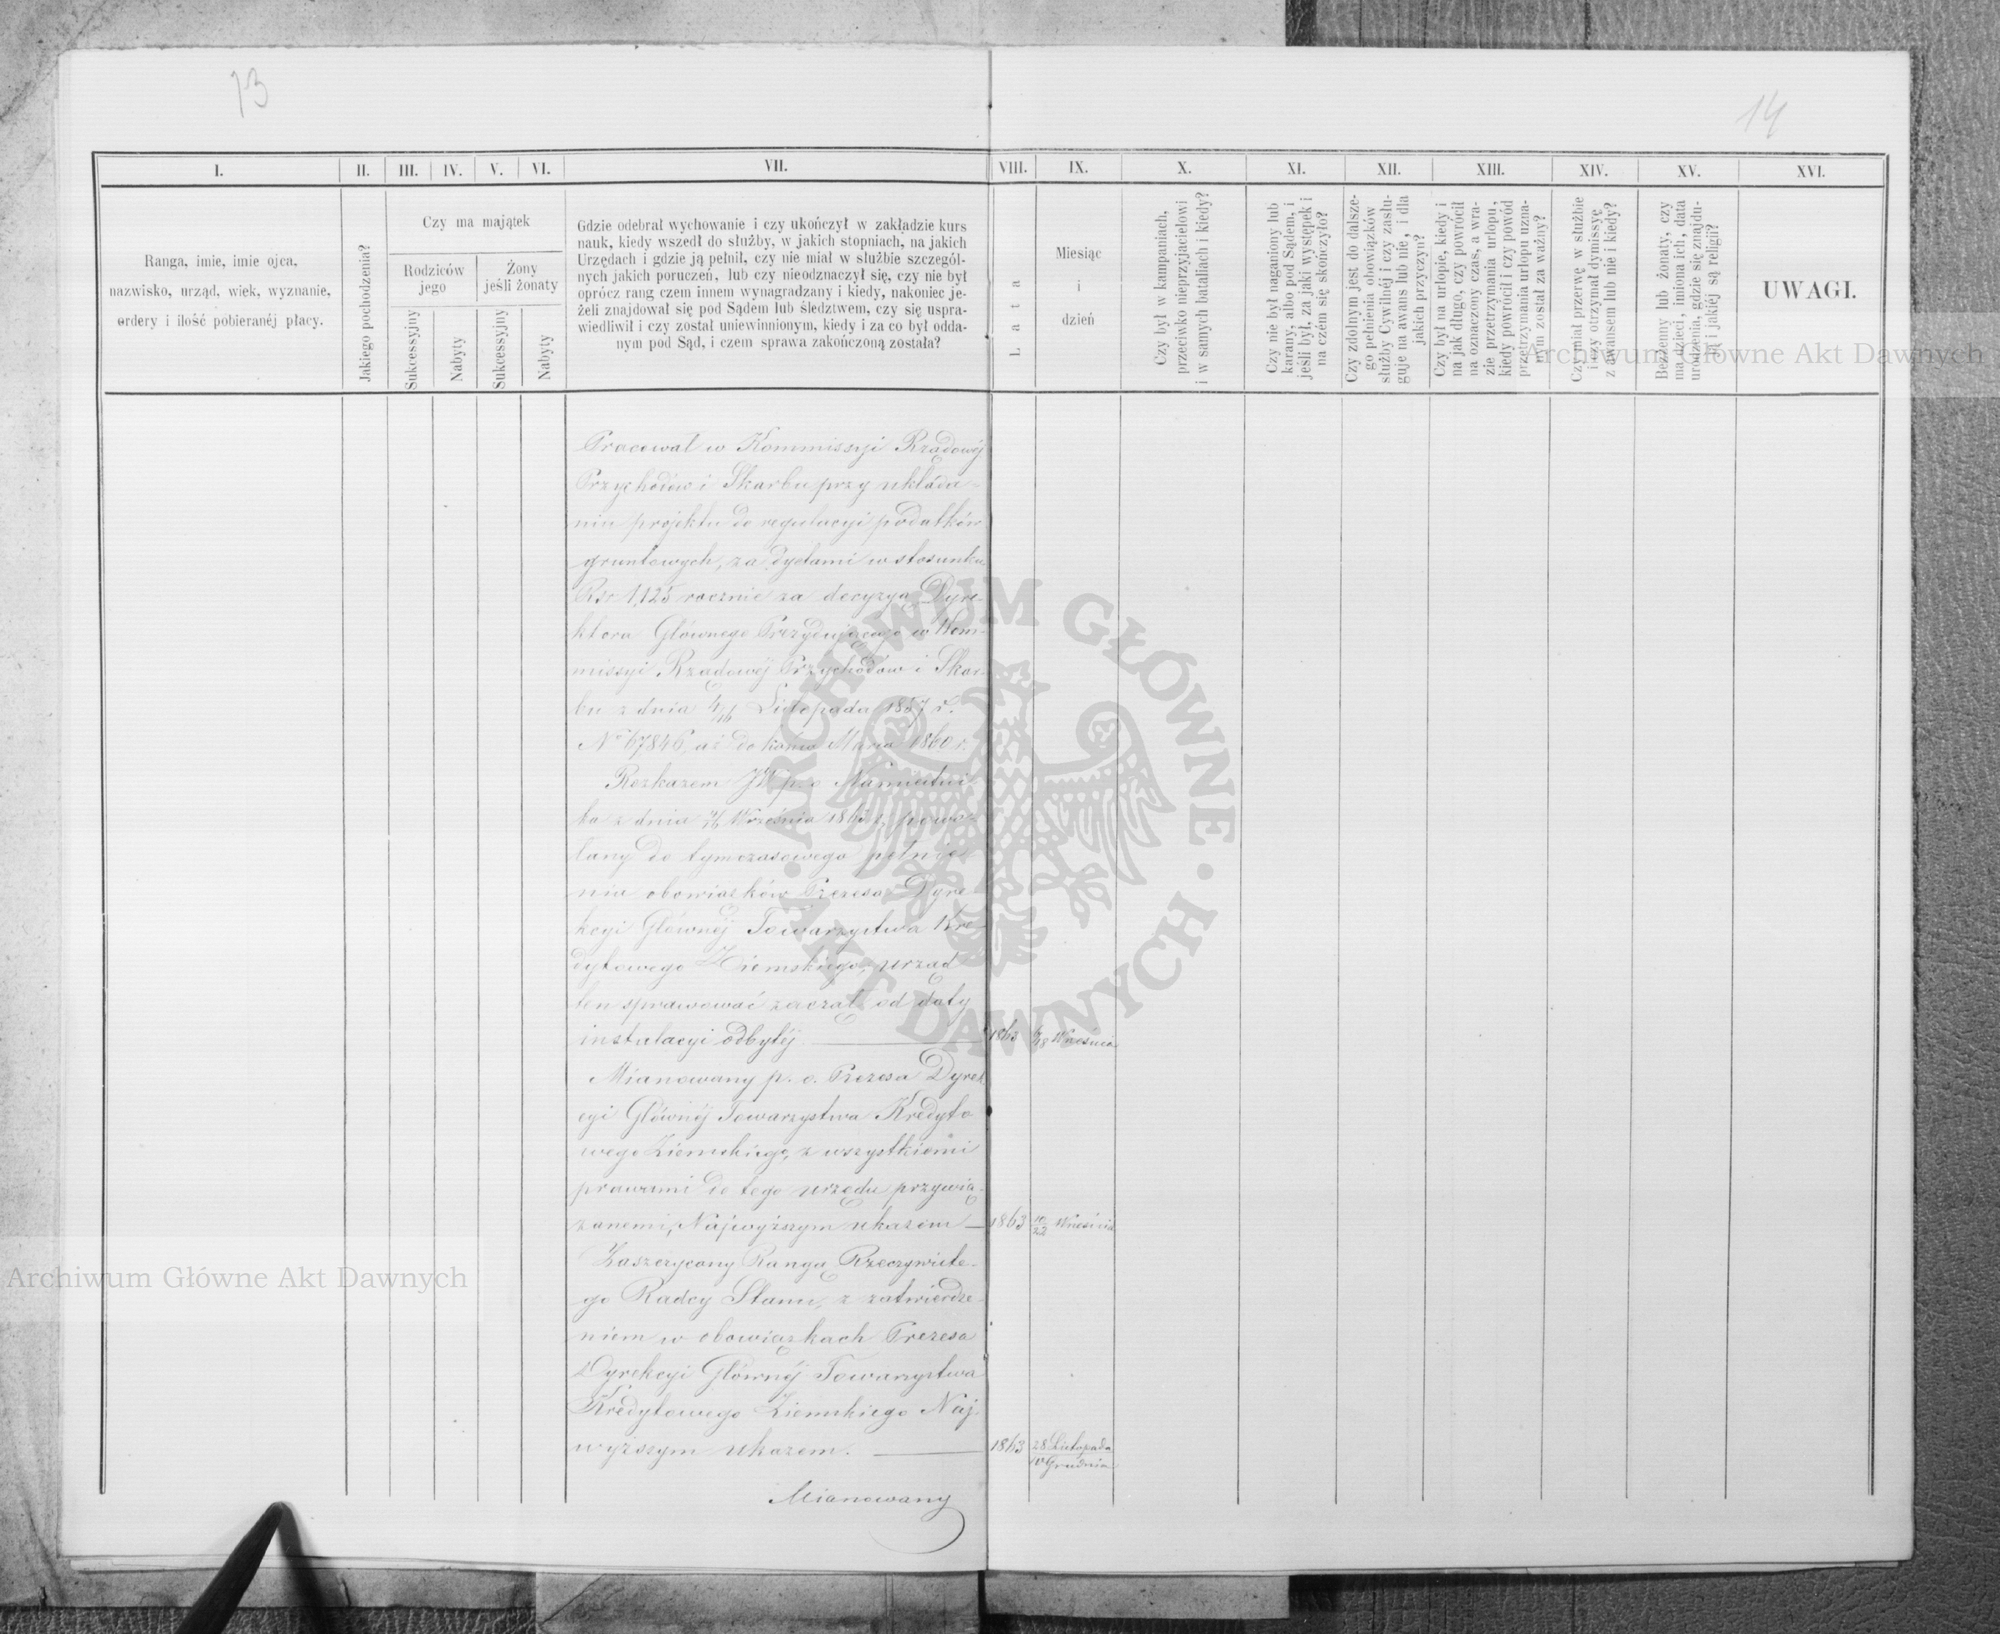 13
14
I. II. III. IV. V. VI. VII. VIII. IX. X. XI. XII. XIII. XIV. XV. XVI.
Ranga, imie, imie ojca,
nazwisko, urząd, wiek, wyznanie,
ordery i ilość pobieranéj płacy.
Jakiego pochodzenia?
Czy ma majątek
Rodziców
jego
Żony
jeśli żonaty
Sukcessyjny
Nabyty
Sukcessyjny
Nabyty
Gdzie odebrał wychowanie i czy ukończył w zakładzie kurs
nauk, kiedy wszedł do służby, w jakich stopniach, na jakich
Urzędach i gdzie ją pełnił, czy nie miał w służbie szczegól-
nych jakich poruczeń, lub czy nieodznaczył się, czy nie był
oprócz rang czem innem wynagradzany i kiedy, nakoniec je-
żeli znajdował się pod Sądem lub śledztwem, czy się uspra-
wiedliwił i czy został uniewinnionym, kiedy i za co był odda-
nym pod Sąd, i czem sprawa zakończoną została?
Lata
Miesiąc
i
dzień
Czy był w kampaniach,
przeciwko nieprzyjacielowi
i w samych bataliach i kiedy?
Czy nie był naganiony lub
karany, albo pod Sądem, i
jeśli był, za jaki występek i
na czém się skończyło?
Czy zdolnym jest do dalsze-
go pełnienia obowiązków
służby Cywilnéj i czy zasłu-
guje na awans lub nie, i dla
jakich przyczyn?
Czy był na urlopie, kiedy i
na jak długo, czy powrócił
na oznaczony czas, a w ra-
zie przetrzymania urlopu,
kiedy powrócił i czy powód
przetrzymania urlopu uzna-
nym został za ważny?
Czy miał przerwę w służbie
i czy otrzymał dymissyę
z awansem lub nie i kiedy?
Bezżenny lub żonaty, czy
ma dzieci, imiona ich, data
urodzenia, gdzie się znajdu-
ją i jakiéj są religii?
UWAGI.
Pracował w Kommissyi Rządowéj
Przychodów i Skarbu przy układa-
niu projektu do regulacyi podatków
gruntowych, za dyetami w stosunku
Rsr 1,125 rocznie za decyzyą Dyre-
ktora Głównego Prezydującego w Kom-
missyi Rządowéj Przychodów i Skar-
bu z dnia 4/16 Listopada 1857 r.
No 67846, aż do końca Marca 1860 r.
Rozkazem JW p. o. Namiestni
ka z dnia Września 1863 r. powo-
łany do tymczasowego pełnie-
nia obowiązków Prezesa Dyre-
kcyi Głównéj Towarzystwa Kre-
dytowego Ziemskiego, urząd
ten sprawować zaczął od daty
instalacyi odbytéj 1863 6/18 Września
Mianowany p. o. Prezesa Dyrek
cyi Głównéj Towarzystwa Kredyto
wego Ziemskiego, z wszystkiemi
prawami do tego urzędu przywią-
zanemi, Najwyższym ukazem 1863 10/22 Września
Zaszczycony Rangą Rzeczywiste-
go Radcy Stanu, z zatwierdze-
niem w obowiązkach Prezesa
Dyrekcyi Głównéj Towarzystwa
Kredytowego Ziemskiego Naj-
wyższym ukazem. 1863 28 Listopada
10 Grudnia
Mianowany
ARCHIWUM GŁÓWNE AKT DAWNYCH
Archiwum Główne Akt Dawnych
Archiwum Główne Akt Dawnych